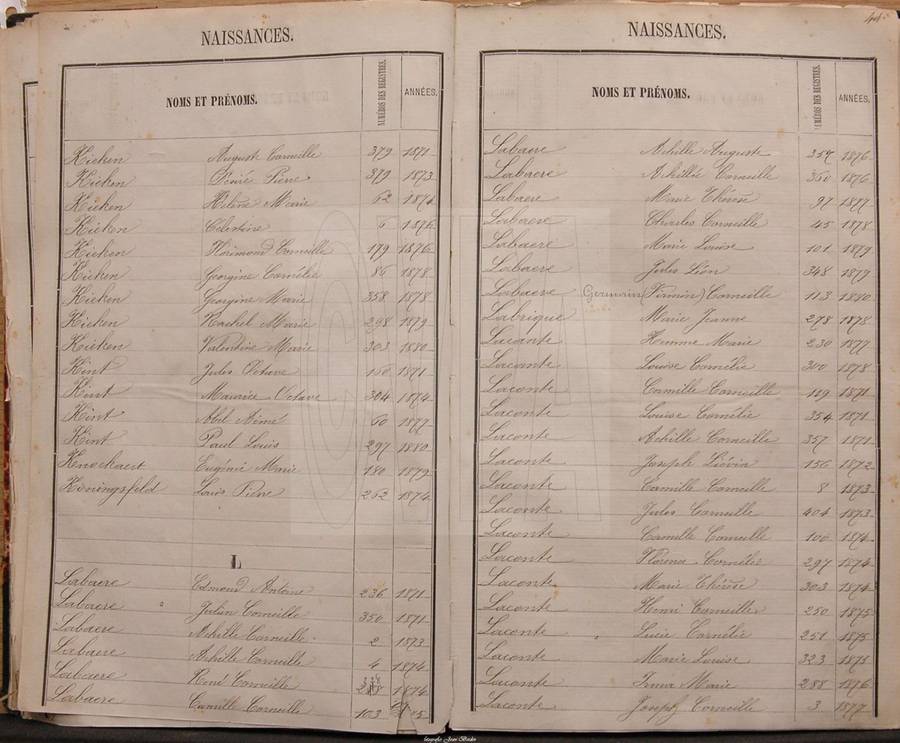 NAISSANCES.
NOMS ET PRÉNOMS. NUMÉROS DES REGISTRES. ANNÉES.
Kieken Auguste Corneille 379 1871
Kieken Désiré Pierre 319 1873
Kieken Hélène Marie 62 1874
Kieken Célestine 6 1876
Kieken Florimond Corneille 179 1876
Kieken Georgine Cornélie 86 1878
Kieken Georgine Marie 358 1878
Kieken Rachel Marie 298 1879
Kieken Valentine Marie 303 1880
Kint Jules Octave 150 1871
Kint Maurice Octave 304 1874
Kint Abel Aimé 60 1877
Kint Paul Louis 297 1880
Knockaert Eugénie Marie 180 1879
Koningsfeld Louis Pierre 262 1874
L
Labaere Edmond Antoine 236 1871
Labaere Julien Corneille 350 1871
Labaere Achille Corneille 2 1873
Labaere Achille Corneille 4 1874
Labaere René Corneille 1874
Labaere Camille Corneille 103
NAISSANCES.
NOMS ET PRÉNOMS. NUMÉROS DES REGISTRES. ANNÉES.
Labaere Achille Auguste 357 1876
Labaere Achille Corneille 360 1876
Labaere Marie Thérèse 97 1877
Labaere Charles Corneille 45 1878
Labaere Marie Louise 101 1879
Labaere Jules Léon 348 1879
Labaere Germain (Firmin) Corneille 113 1880
Labrique Marie Jeanne 278 1878
Laconte Marie 230 1877
Laconte Louise Cornélie 300 1878
Laconte Camille Corneille 119 1871
Laconte Louise Cornélie 354 1871
Laconte Achille Corneille 357 1871
Laconte Joseph Liévin 156 1872
Laconte Camille Corneille 8 1873
Laconte Jules Corneille 404 1873
Laconte Camille Corneille 100 1874
Laconte Florena Cornélie 297 1874
Laconte Marie Thérèse 303 1874
Laconte Henri Corneille 250 1875
Laconte Lucie Cornélie 251 1875
Laconte Marie Louise 323 1875
Laconte Irma Marie 288 1876
Laconte Joseph Corneille 3 1877